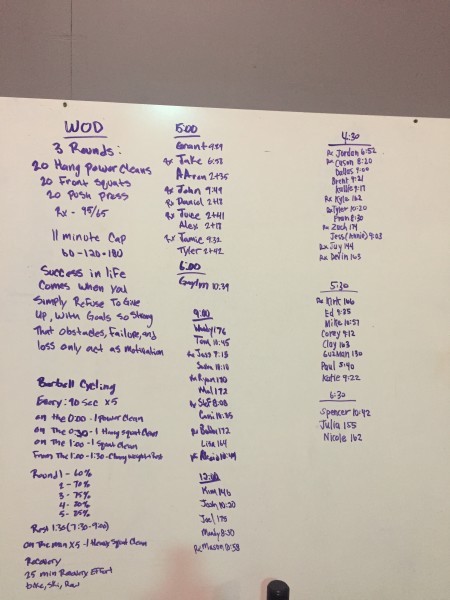 WOD
3 Rounds:
20 Hang Power Cleans
20 Front Squats
20 Push Press
Rx - 95/65
11 minute Cap
60-120-180
Success in life
Comes when you
Simply Refuse To Give
Up, With Goals so Strong
That obstacles, Failure, and
loss only act as motivation
Barbell Cycling
Every: 90 Sec x5
on the 0:00 - 1 Power Clean
on The 0:30 - 1 Hang Squat Clean
on The 1:00 - 1 Squat Clean
From The 1:00 - 1:30 -
Round 1 - 60%
2 - 70%
3 - 75%
4 - 80%
5 - 85%
Rest 1:30 (7:30-9:00)
on The min x5 - 1 Heavy Squat Clean
Recovery
25 min Recovery Effort
bike, Ski, Row
5:00
Grant 9:59
Rx Jake 6:58
AAron 2+35
Rx John 9:49
Rx Daniel 2+12
Rx 2+41
Alex 2+17
Rx Jamie 9:32
Tyler 2+42
6:00
10:39
9:00
176
Tom 10:45
Rx Jass 9:18
Susan 10:10
Rx Ryan 180
172
Rx Stef 8:08
10:35
Rx 172
Lisa 164
Rx
12:00
Kim 146
Josh 10:20
Joel 175
Mandy 8:50
Rx Mason 10:58
4:30
Rx Jordan 6:52
Rx Cason 8:20
Dallas 9:00
Brent 9:21
Kallie 9:17
Rx Kyle 162
Rx Tyler 10:20
Fran 8:30
Rx Zach 174
Jess (Annie) 9:03
Rx Jay 144
Rx Devin 163
5:30
Rx Kirk 166
Ed 9:35
Mike 10:57
Corey 9:12
Clay 163
Guzman 130
Paul 5:40
Katie 9:22
6:30
Spencer 10:42
Julia 155
Nicole 162